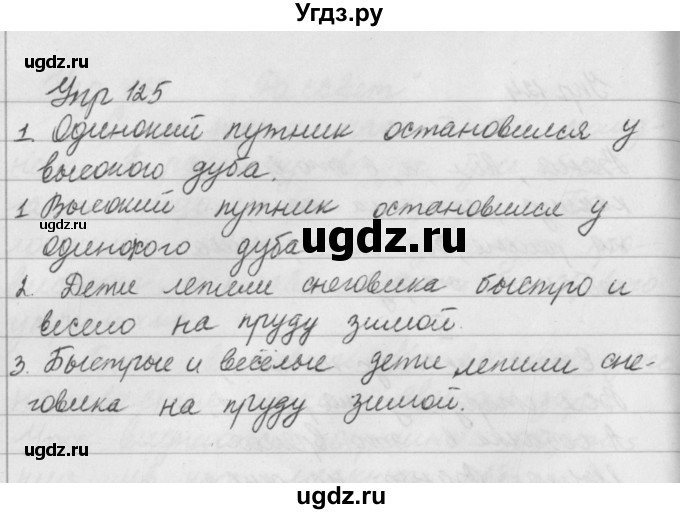 Угдз.ру
ugdz.ru
Упр 125
1. Одинокий путник остановился у
высокого дуба.
ugdz.ru
1 Высокий путник остановился у
одинокого дуба
ugdz.ru
2. Дети лепили снеговика быстро и
весело на пруду зимой.
3. Быстрые и весёлые дети лепили сне-
говика на пруду зимой.
ugdz.ru
ugdz.ru